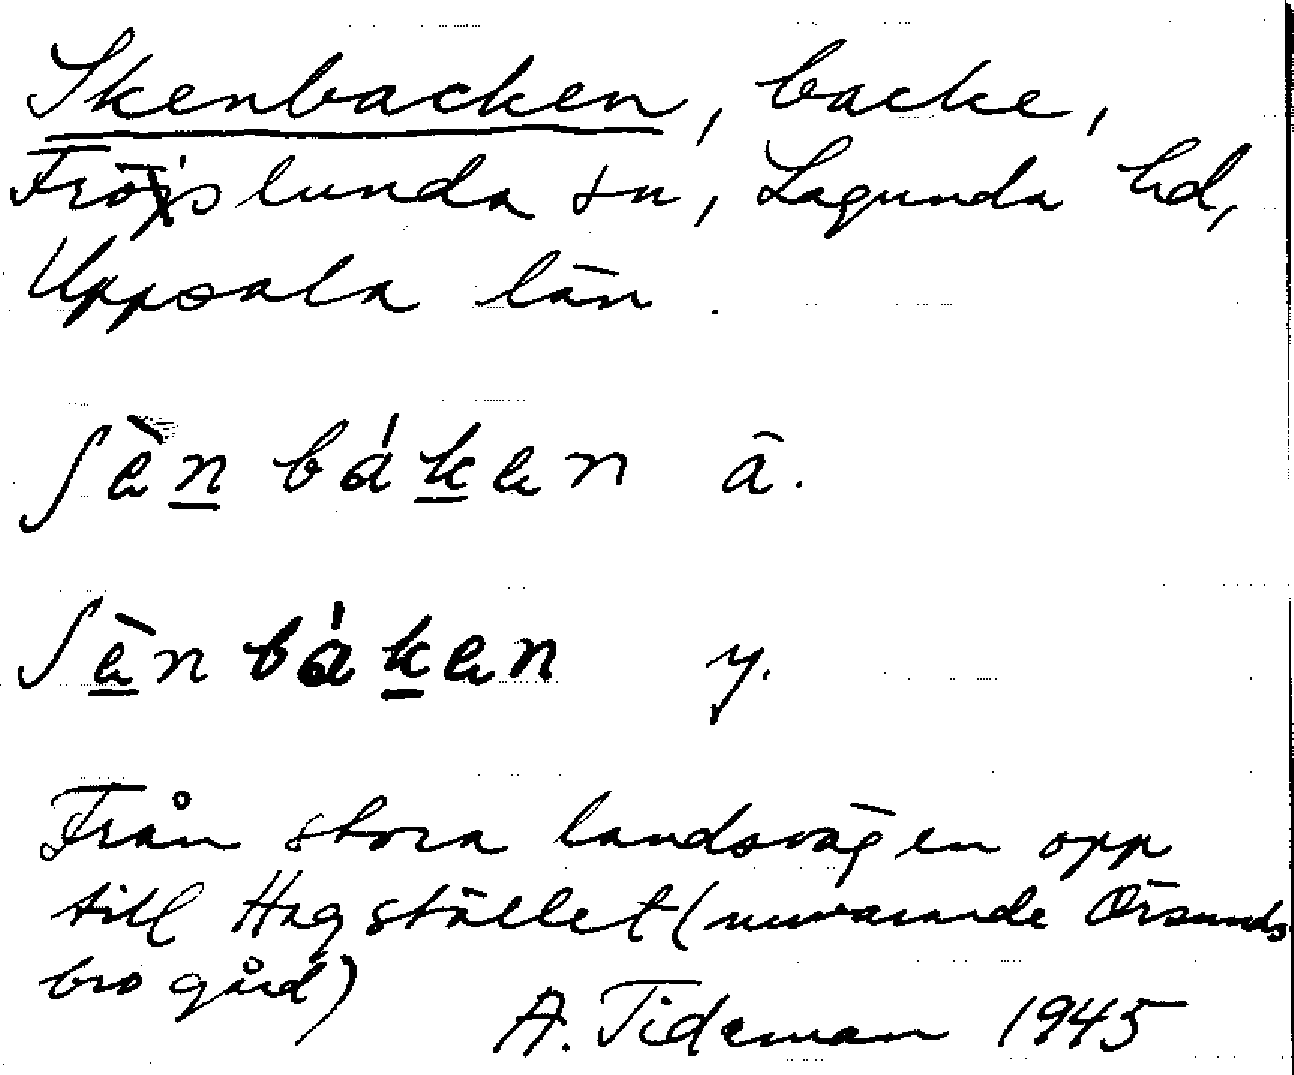 Skenbacken, backe,
Fröslunda sn, Lagunda hd,
Uppsala län.
ʃèn báken ä.
ʃèn báken y.
Från stora landsvägen opp
till Hagstället (nuvarande Örsunds
bro gård)
A. Tideman 1945